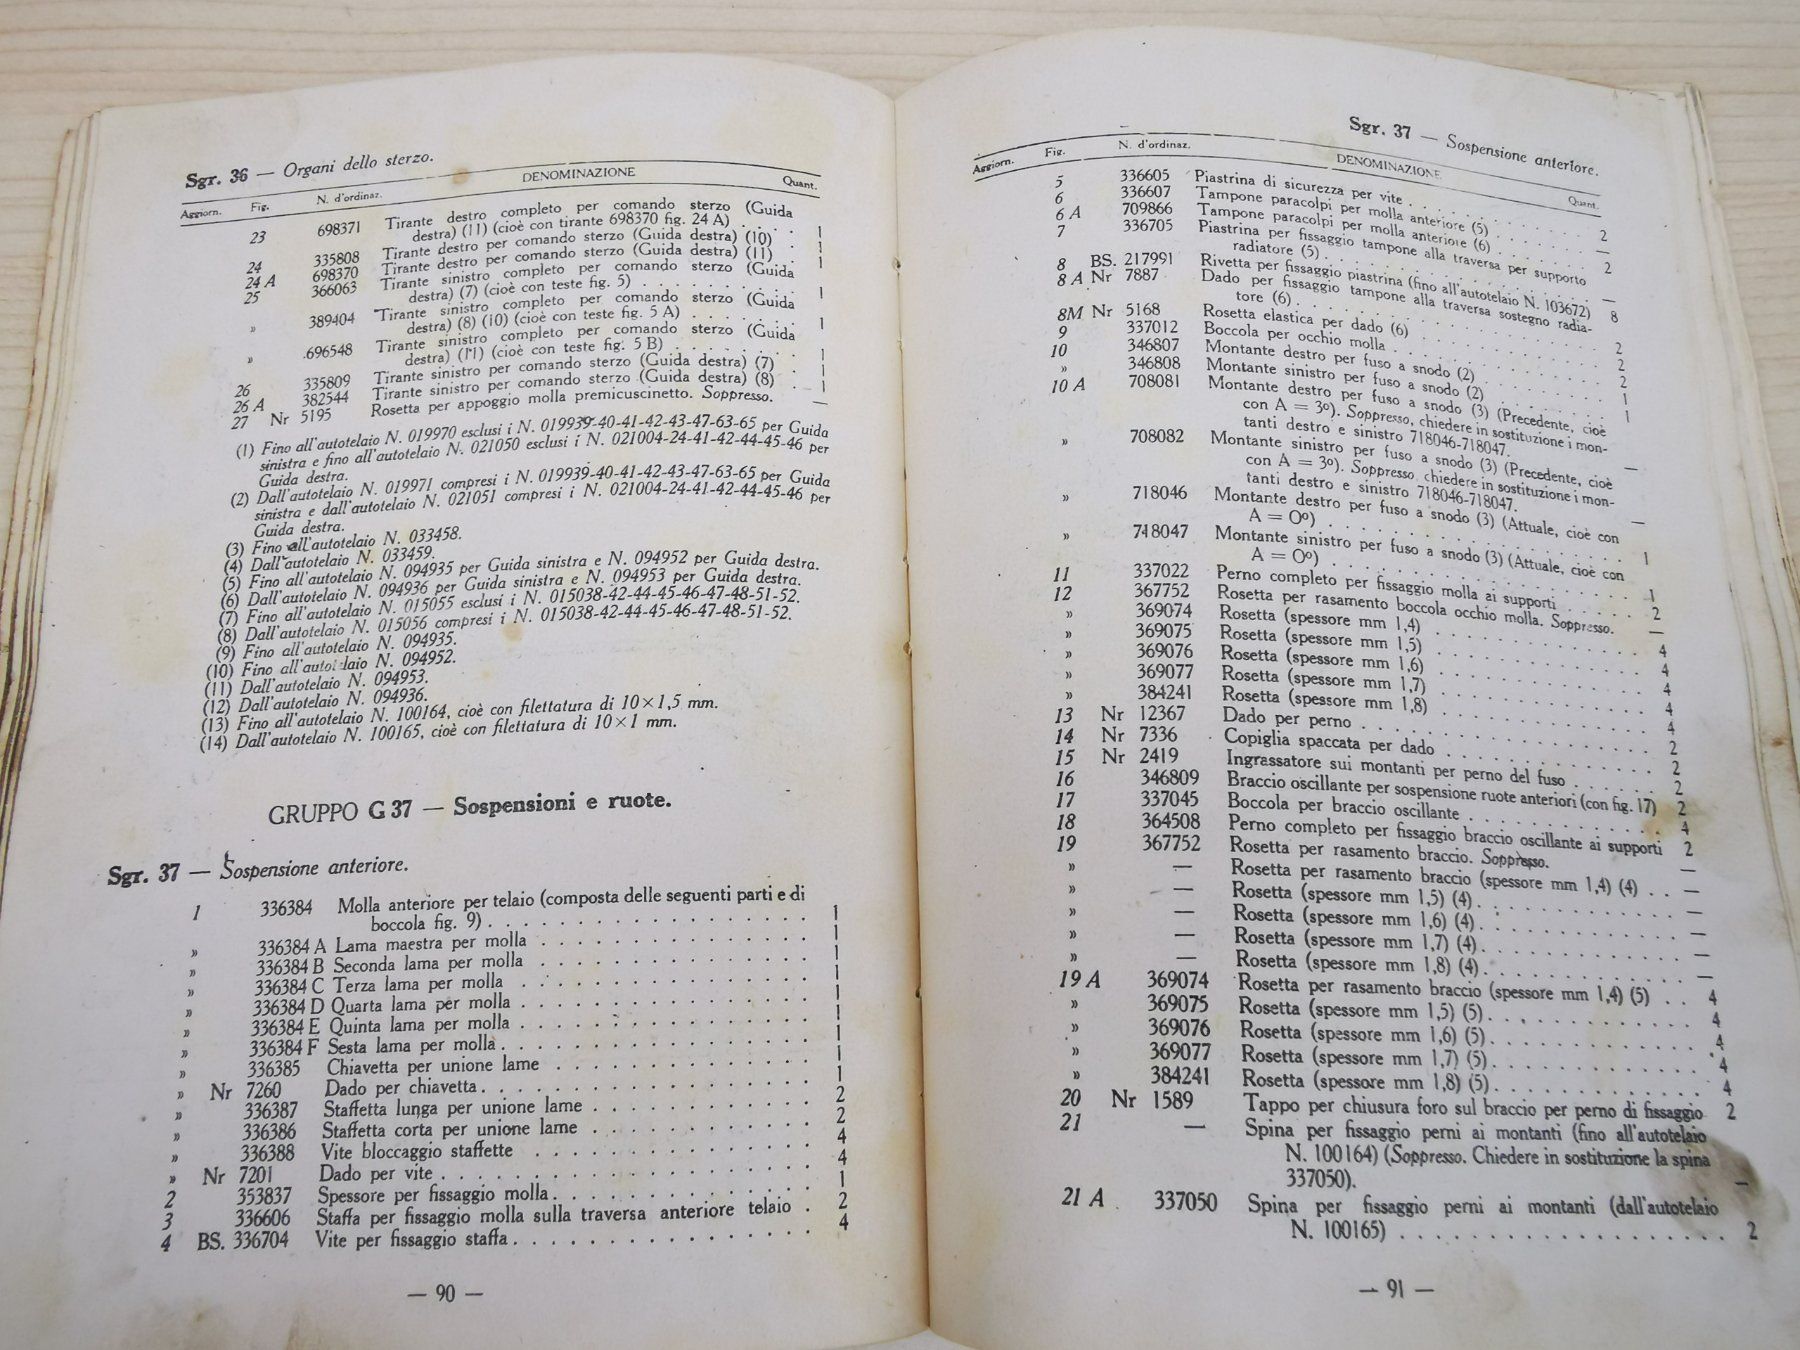 Sgr. 36 — Organi dello sterzo.
Aggiorn. Fig. N. d'ordinaz. DENOMINAZIONE Quant.
23 698371 Tirante destro completo per comando sterzo (Guida
destra) (11) (cioè con tirante 698370 fig. 24 A) . . . . 1
24 335808 Tirante destro per comando sterzo (Guida destra) (10) 1
24 A 698370 Tirante destro per comando sterzo (Guida destra) (11) . 1
25 366063 Tirante sinistro completo per comando sterzo (Guida
destra) (7) (cioè con teste fig. 5) . . . . . . . . . . 1
» 389404 Tirante sinistro completo per comando sterzo (Guida
destra) (8) (10) (cioè con teste fig. 5 A) . . . . . . . 1
» 696548 Tirante sinistro completo per comando sterzo (Guida
destra) (11) (cioè con teste fig. 5 B) . . . . . . . . 1
26 335809 Tirante sinistro per comando sterzo (Guida destra) (7) 1
26 A 382544 Tirante sinistro per comando sterzo (Guida destra) (8) . 1
27 Nr 5195 Rosetta per appoggio molla premicuscinetto. Soppresso. —
(1) Fino all'autotelaio N. 019970 esclusi i N. 019939-40-41-42-43-47-63-65 per Guida
sinistra e fino all'autotelaio N. 021050 esclusi i N. 021004-24-41-42-44-45-46 per
Guida destra.
(2) Dall'autotelaio N. 019971 compresi i N. 019939-40-41-42-43-47-63-65 per Guida
sinistra e dall'autotelaio N. 021051 compresi i N. 021004-24-41-42-44-45-46 per
Guida destra.
(3) Fino all'autotelaio N. 033458.
(4) Dall'autotelaio N. 033459.
(5) Fino all'autotelaio N. 094935 per Guida sinistra e N. 094952 per Guida destra.
(6) Dall'autotelaio N. 094936 per Guida sinistra e N. 094953 per Guida destra.
(7) Fino all'autotelaio N. 015055 esclusi i N. 015038-42-44-45-46-47-48-51-52.
(8) Dall'autotelaio N. 015056 compresi i N. 015038-42-44-45-46-47-48-51-52.
(9) Fino all'autotelaio N. 094935.
(10) Fino all'autotelaio N. 094952.
(11) Dall'autotelaio N. 094953.
(12) Dall'autotelaio N. 094936.
(13) Fino all'autotelaio N. 100164, cioè con filettatura di 10×1,5 mm.
(14) Dall'autotelaio N. 100165, cioè con filettatura di 10×1 mm.
GRUPPO G 37 — Sospensioni e ruote.
Sgr. 37 — Sospensione anteriore.
1 336384 Molla anteriore per telaio (composta delle seguenti parti e di
boccola fig. 9) . . . . . . . . . . . . . . . 1
» 336384 A Lama maestra per molla . . . . . . . . . . . . 1
» 336384 B Seconda lama per molla . . . . . . . . . . . . 1
» 336384 C Terza lama per molla . . . . . . . . . . . . . 1
» 336384 D Quarta lama per molla . . . . . . . . . . . . 1
» 336384 E Quinta lama per molla . . . . . . . . . . . . 1
» 336384 F Sesta lama per molla . . . . . . . . . . . . . 1
» 336385 Chiavetta per unione lame . . . . . . . . . . . 1
» Nr 7260 Dado per chiavetta . . . . . . . . . . . . . . 1
» 336387 Staffetta lunga per unione lame . . . . . . . . . 2
» 336386 Staffetta corta per unione lame . . . . . . . . . 2
» 336388 Vite bloccaggio staffette . . . . . . . . . . . . 4
» Nr 7201 Dado per vite . . . . . . . . . . . . . . . . 4
2 353837 Spessore per fissaggio molla . . . . . . . . . . 1
3 336606 Staffa per fissaggio molla sulla traversa anteriore telaio . 2
4 BS. 336704 Vite per fissaggio staffa . . . . . . . . . . . . 4
— 90 —
Sgr. 37 — Sospensione anteriore.
Aggiorn. Fig. N. d'ordinaz. DENOMINAZIONE Quant.
5 336605 Piastrina di sicurezza per vite . . . . . . . . 2
6 336607 Tampone paracolpi per molla anteriore (5) . . . . . —
6 A 709866 Tampone paracolpi per molla anteriore (6) . . . . . 2
7 336705 Piastrina per fissaggio tampone alla traversa per supporto
radiatore (5) . . . . . . . . . . . . —
8 BS. 217991 Rivetta per fissaggio piastrina (fino all'autotelaio N. 103672) 8
8 A Nr 7887 Dado per fissaggio tampone alla traversa sostegno radia-
tore (6) . . . . . . . . . . . . . 2
8M Nr 5168 Rosetta elastica per dado (6) . . . . . . . . . 2
9 337012 Boccola per occhio molla . . . . . . . . . . . 2
10 346807 Montante destro per fuso a snodo (2) . . . . . . . 1
» 346808 Montante sinistro per fuso a snodo (2) . . . . . . 1
10 A 708081 Montante destro per fuso a snodo (3) (Precedente, cioè
con A = 3º). Soppresso, chiedere in sostituzione i mon-
tanti destro e sinistro 718046-718047. —
» 708082 Montante sinistro per fuso a snodo (3) (Precedente, cioè
con A = 3º). Soppresso, chiedere in sostituzione i mon-
tanti destro e sinistro 718046-718047. —
» 718046 Montante destro per fuso a snodo (3) (Attuale, cioè con
A = Oº) . . . . . . . . . . . . . . 1
» 718047 Montante sinistro per fuso a snodo (3) (Attuale, cioè con
A = Oº) . . . . . . . . . . . . . . 1
11 337022 Perno completo per fissaggio molla ai supporti . . . . 2
12 367752 Rosetta per rasamento boccola occhio molla. Soppresso. —
» 369074 Rosetta (spessore mm 1,4) . . . . . . . . . . 4
» 369075 Rosetta (spessore mm 1,5) . . . . . . . . . . 4
» 369076 Rosetta (spessore mm 1,6) . . . . . . . . . . 4
» 369077 Rosetta (spessore mm 1,7) . . . . . . . . . . 4
» 384241 Rosetta (spessore mm 1,8) . . . . . . . . . . 4
13 Nr 12367 Dado per perno . . . . . . . . . . . . . . 2
14 Nr 7336 Copiglia spaccata per dado . . . . . . . . . . 2
15 Nr 2419 Ingrassatore sui montanti per perno del fuso . . . . . 2
16 346809 Braccio oscillante per sospensione ruote anteriori (con fig. 17) 2
17 337045 Boccola per braccio oscillante . . . . . . . . . 4
18 364508 Perno completo per fissaggio braccio oscillante ai supporti 2
19 367752 Rosetta per rasamento braccio. Soppresso. —
» — Rosetta per rasamento braccio (spessore mm 1,4) (4) . . —
» — Rosetta (spessore mm 1,5) (4) . . . . . . . . . —
» — Rosetta (spessore mm 1,6) (4) . . . . . . . . . —
» — Rosetta (spessore mm 1,7) (4) . . . . . . . . . —
» — Rosetta (spessore mm 1,8) (4) . . . . . . . . . —
19 A 369074 Rosetta per rasamento braccio (spessore mm 1,4) (5) . . 4
» 369075 Rosetta (spessore mm 1,5) (5) . . . . . . . . . 4
» 369076 Rosetta (spessore mm 1,6) (5) . . . . . . . . . 4
» 369077 Rosetta (spessore mm 1,7) (5) . . . . . . . . . 4
» 384241 Rosetta (spessore mm 1,8) (5) . . . . . . . . . 4
20 Nr 1589 Tappo per chiusura foro sul braccio per perno di fissaggio 2
21 — Spina per fissaggio perni ai montanti (fino all'autotelaio
N. 100164) (Soppresso. Chiedere in sostituzione la spina
337050). —
21 A 337050 Spina per fissaggio perni ai montanti (dall'autotelaio
N. 100165) . . . . . . . . . . . . . . 2
— 91 —